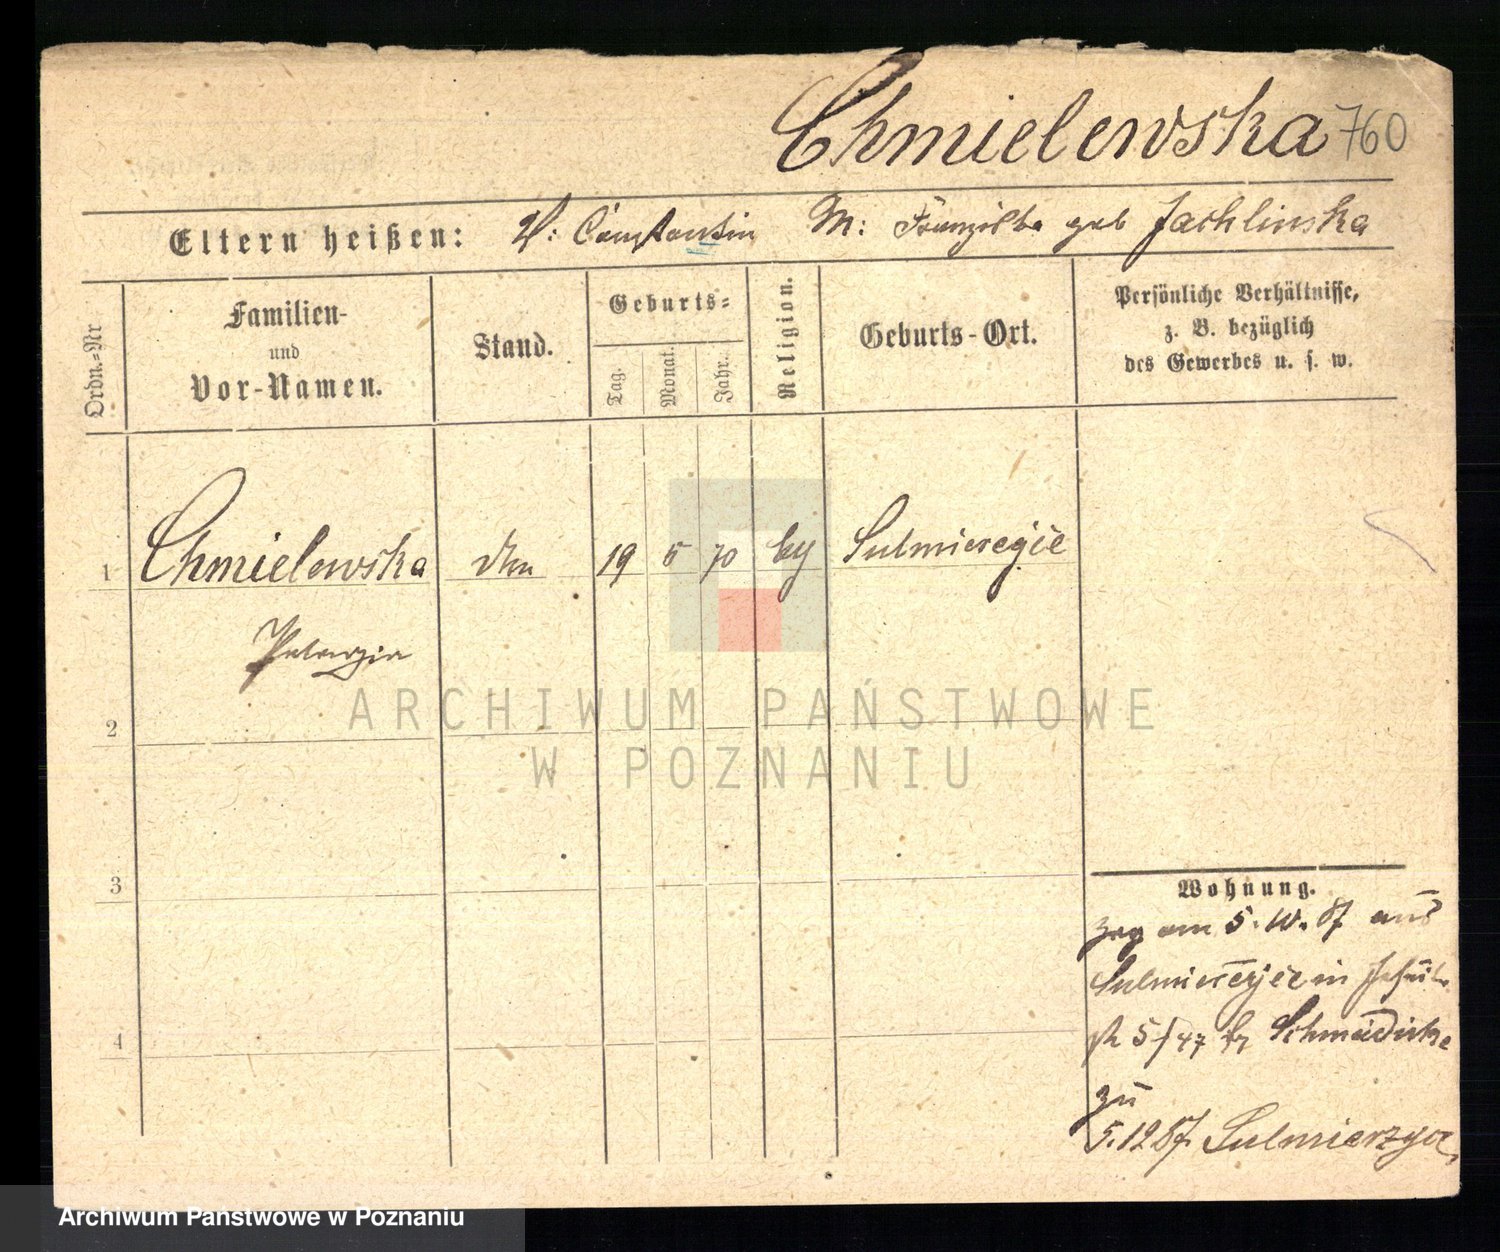 Chmielewska 760
Eltern heißen: V: Constantin M: Franziska geb Jachlinska
Ordn.-Nr
Familien-
und
Vor-Namen.
Stand.
Geburts-
Tag.
Monat.
Jahr.
Religion.
Geburts-Ort.
Persönliche Verhältnisse,
z. B. bezüglich
des Gewerbes u. s. w.
1 Chmielewska 19 5 70 Sulmieregiē
2
3
4
Wohnung.
zog am 5. 10. 87 aus
in
5/47 Schmädicke
zu
5.12 87. Sulmierzyce
ARCHIWUM PAŃSTWOWE
W POZNANIU
Archiwum Państwowe w Poznaniu